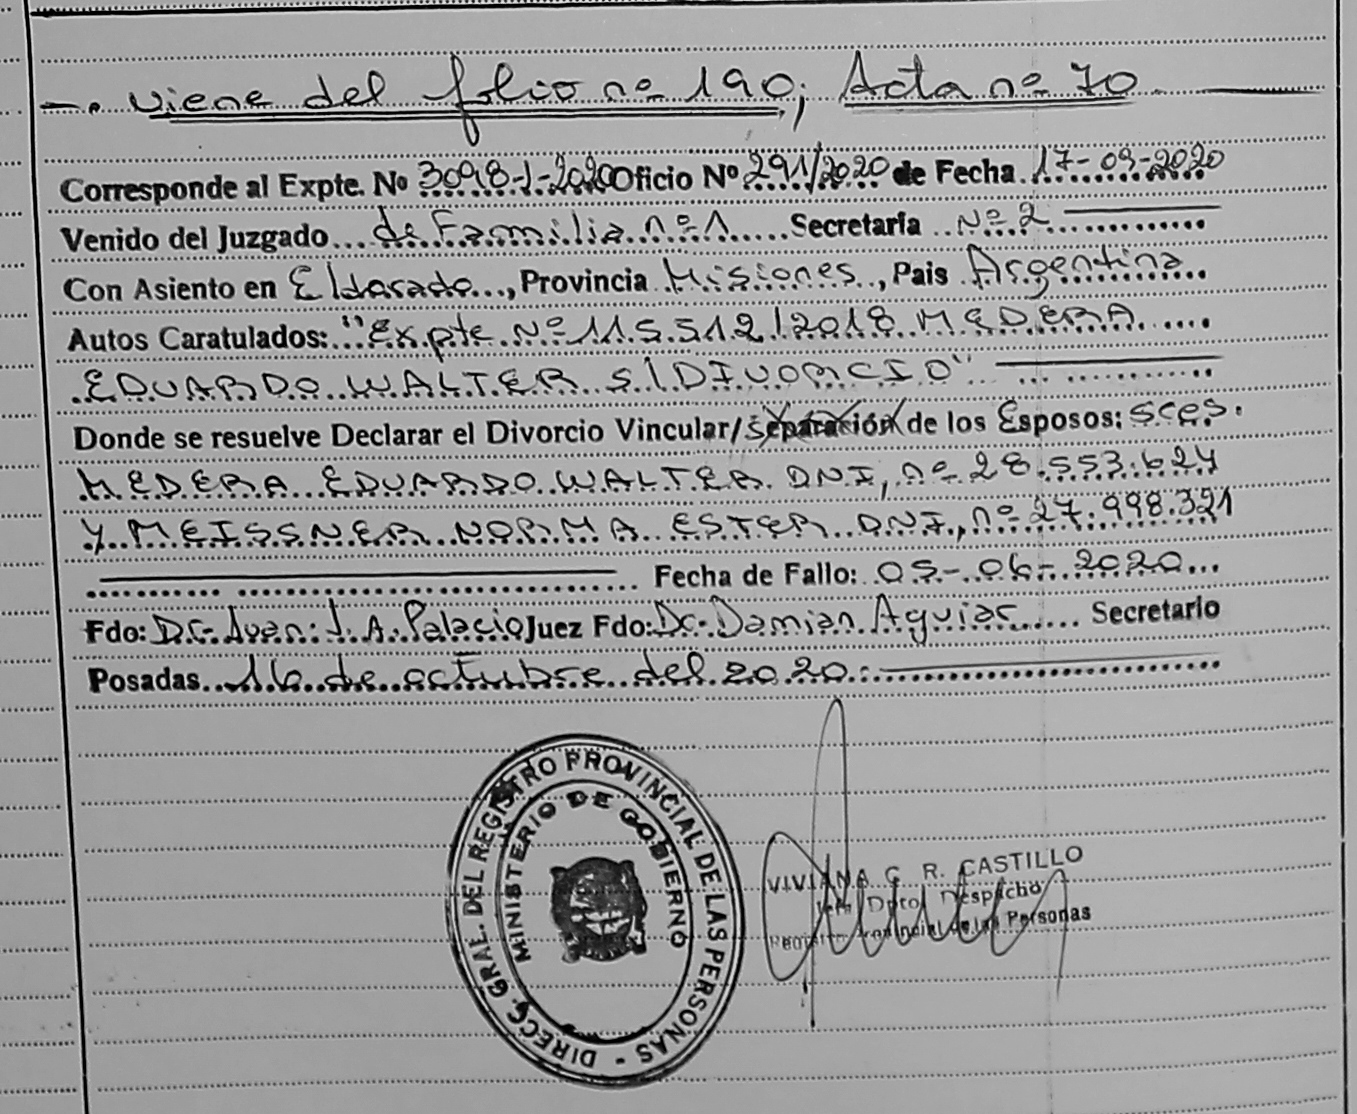 viene del folio nº 190; Acta nº 70
Corresponde al Expte. Nº 3098-J-2020 Oficio Nº 291/2020 de Fecha 17-09-2020
Venido del Juzgado de Familia nº 1 Secretaría Nº 2
Con Asiento en Eldorado, Provincia Misiones, Pais Argentina
Autos Caratulados: "Expte Nº 115.512/2018 MEDERA
EDUARDO WALTER S/DIVORCIO"
Donde se resuelve Declarar el Divorcio Vincular/Separación de los Esposos: sres.
MEDERA EDUARDO WALTER DNI, nº 28.553.624
Y MEISSNER NORMA ESTER DNI, nº 27.998.321
Fecha de Fallo: 05-06-2020
Fdo: Dr. Juan J. A. Palacio Juez Fdo: Dr. Damian Aguiar Secretario
Posadas 16 de octubre del 2020.
DIRECC. GRAL. DEL REGISTRO PROVINCIAL DE LAS PERSONAS -
MINISTERIO DE GOBIERNO
VIVIANA C. R. CASTILLO
Dpto. Despacho
Provincial de las Personas